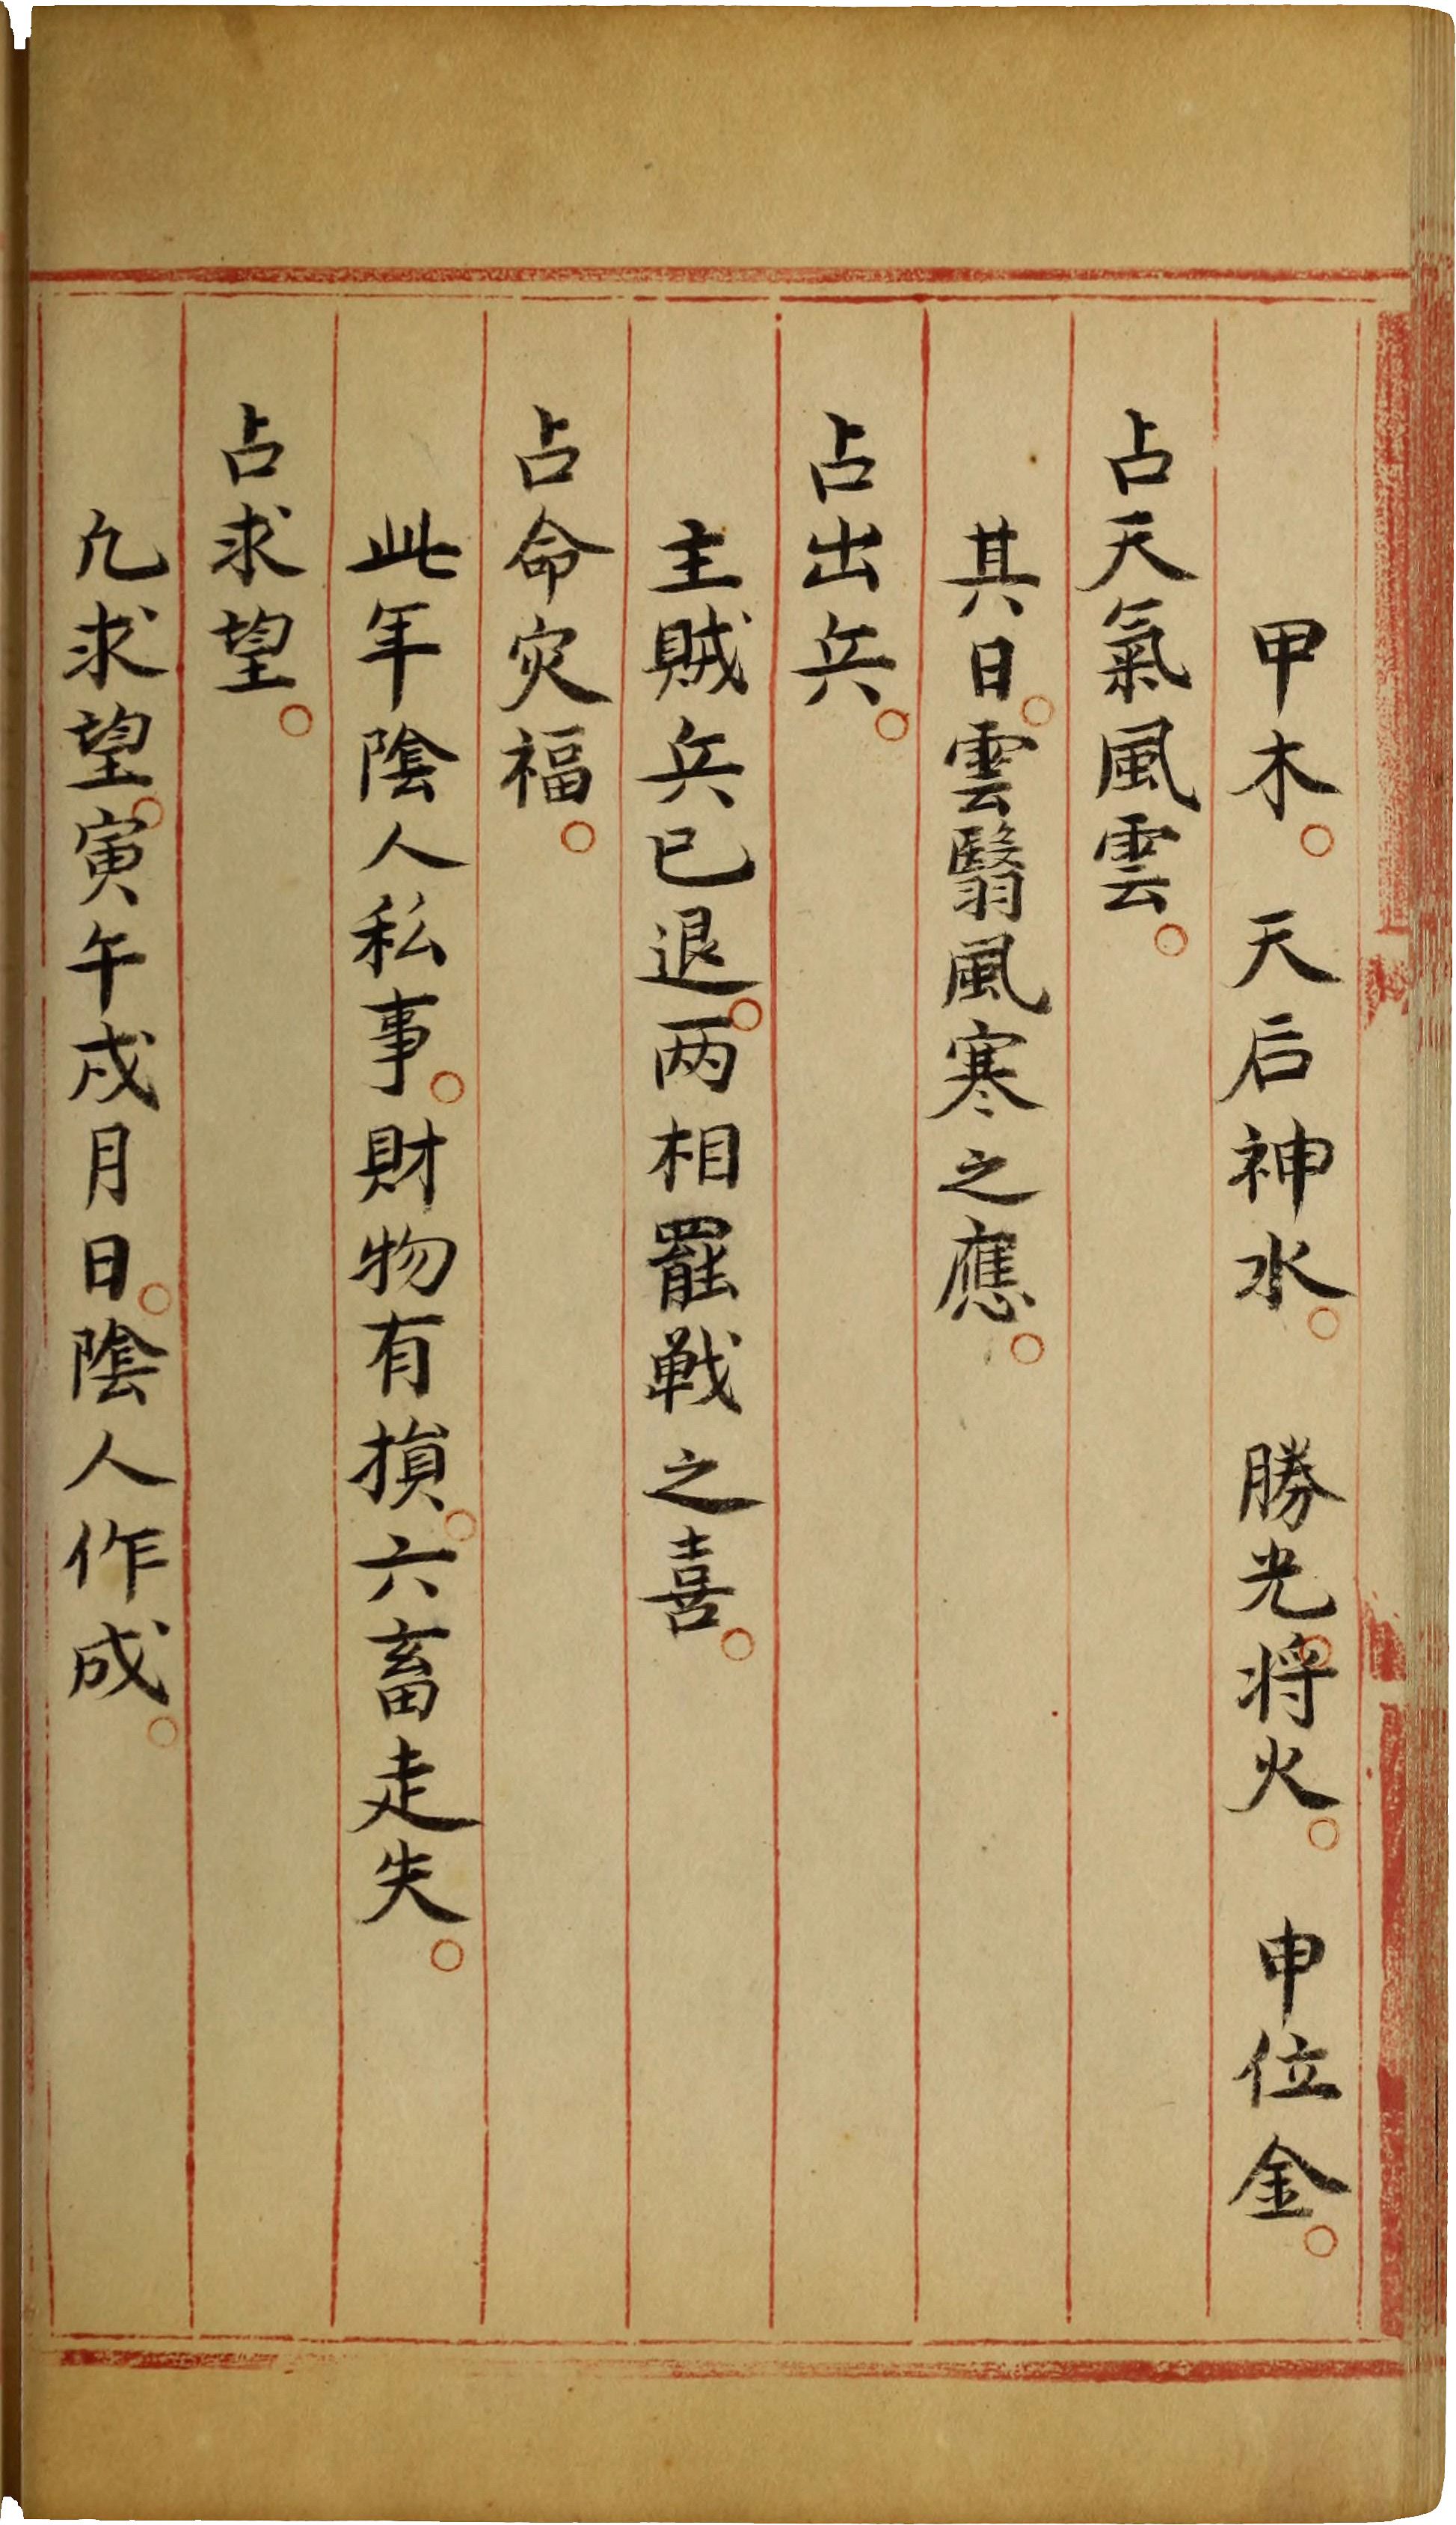 甲木。天后神水。勝光。将火。申位金。
占天氣風雲。
其日。雲翳風寒之應。
占出兵。
主賊兵已退。两相罷戦之喜。
占命灾福。
此年陰人私事。財物有損。六畜走失。
占求望。
凢求望。寅午戌月日。陰人作成。